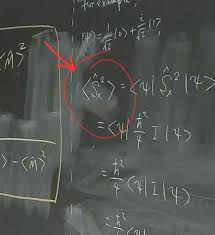 for example,
|ψ⟩ = 1/√2 |0⟩ + i/√2 |1⟩
⟨M̂⟩²
⟨Ŝₓ²⟩ = ⟨ψ| Ŝₓ² |ψ⟩
= ⟨ψ| ħ²/4 I |ψ⟩
⟩ - ⟨M̂⟩²
= ħ²/4 ⟨ψ| I |ψ⟩
= ħ²/4 ⟨ψ|